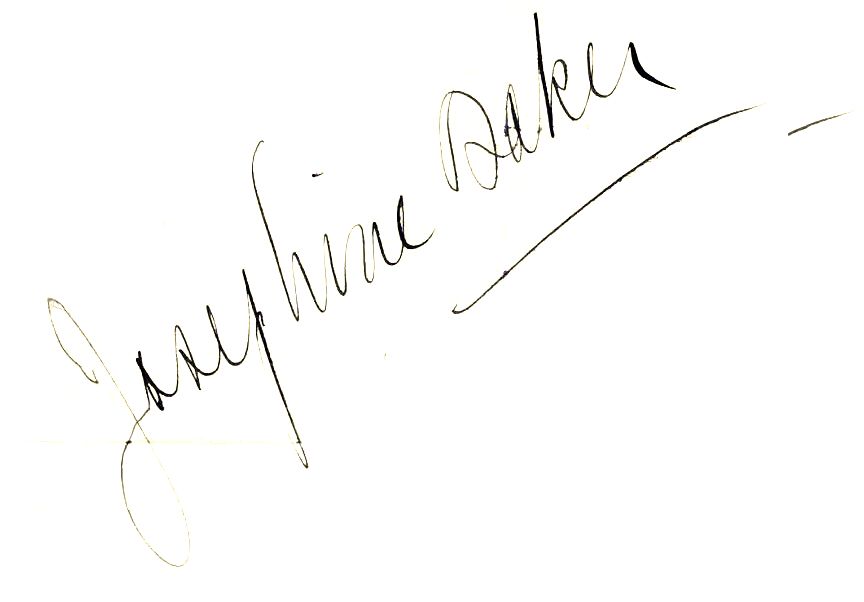 Josephine Baker